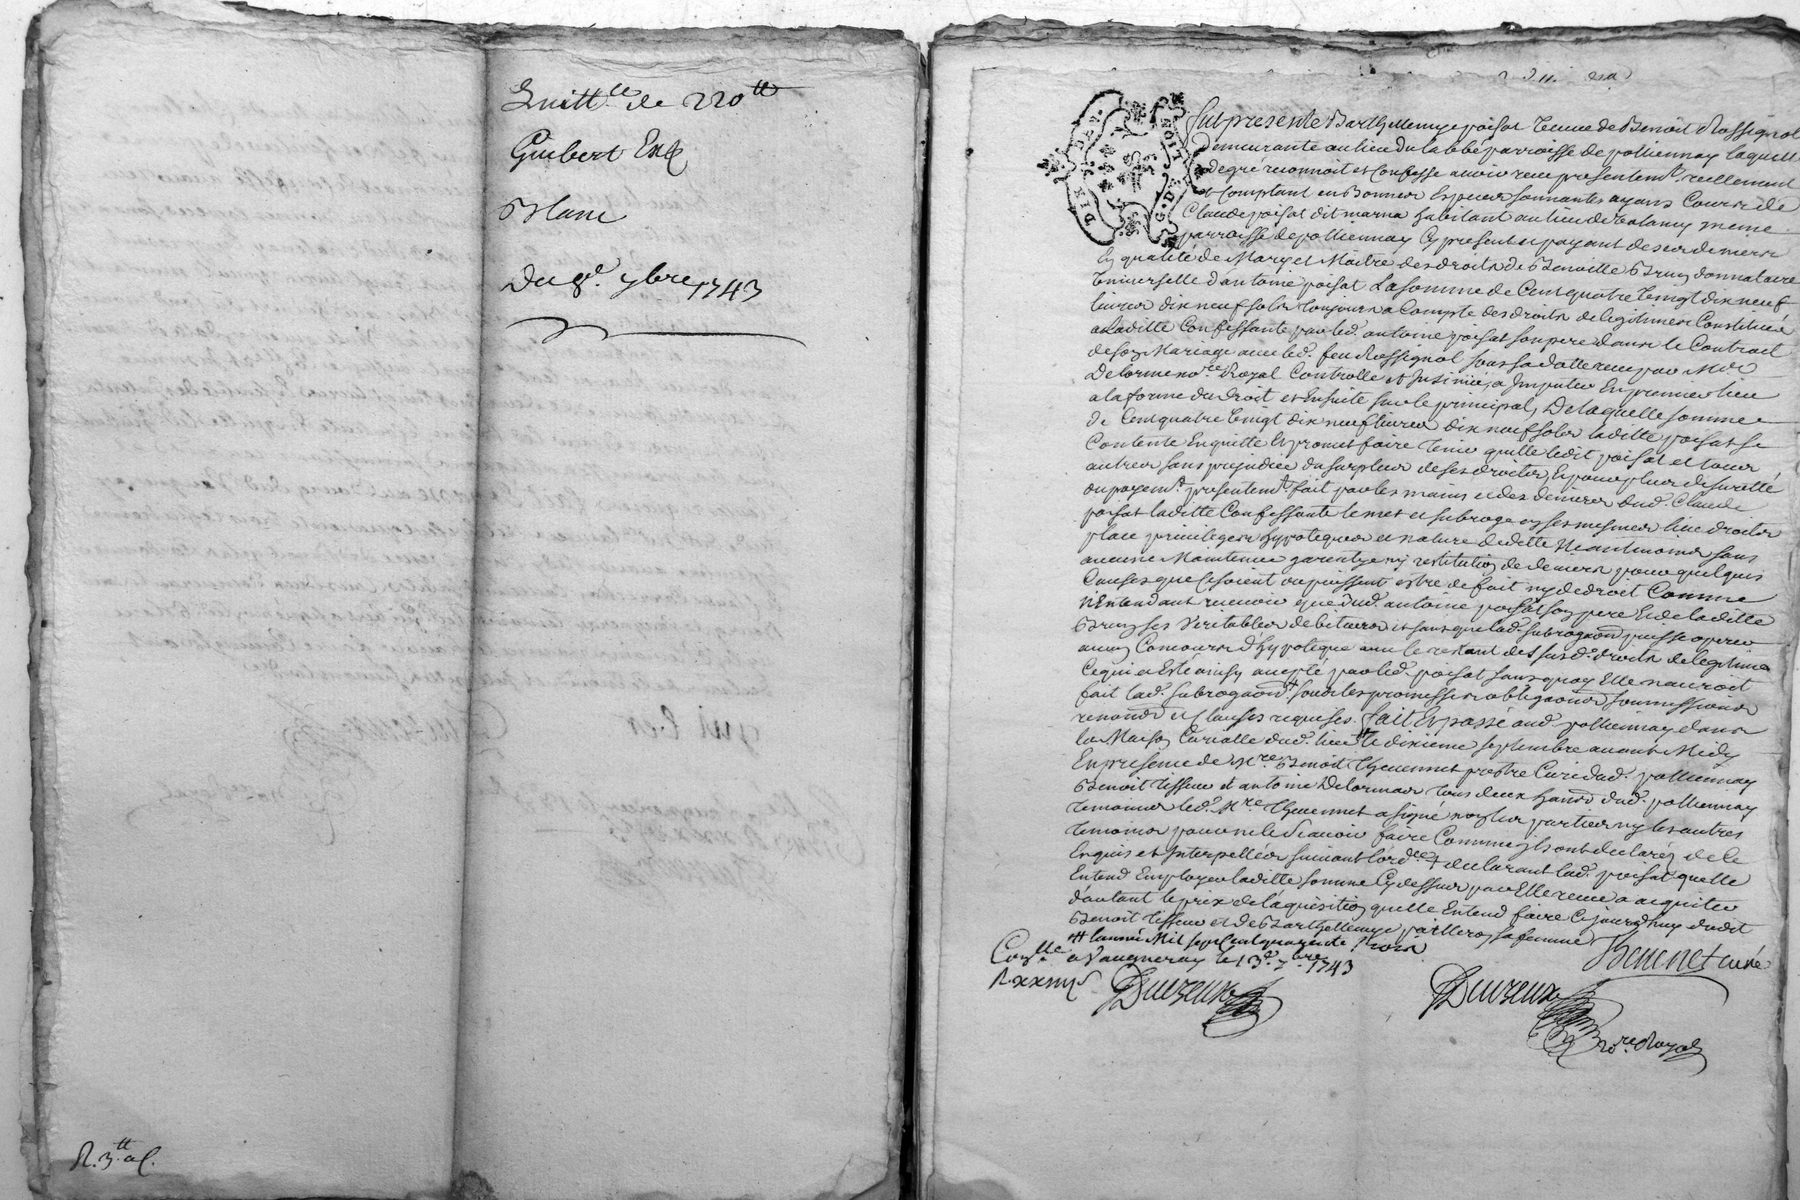 Quitt.ce de 220tt
Guibert
Blanc
Du 8e. 9bre 1743
R. 3tt
DIX DEN.
G. DE LION
Fut presente Barthelemye poisat veuve de Benoit Rossignol
demeurante au lieu du labbé parroisse de pollionnay laquelle
de gré reconnoit et Confesse avoir receu presentemt. reellement
et Comptant en Bonnes Especes sonnantes ayans Cours de
Claude poisat dit marna habitant au lieu de meme
parroisse de pollionnay Cy present et payant de ses deniers
En qualité de Mary et Maitre des droits de Benoitte Brun donnataire
universelle d'antoine poisat La somme de Cent quatre vingt dix neuf
livres dix neuf sols toujours a Compte des droits de legitimes Constitués
a laditte Confessante par led. antoine poisat son pere dans le Contract
de son Mariage avec led. feu Rossignol sous sa datte receu par Mre
Delorme nore. Royal Controllé et Insinué, a Imputer En premier lieu
a la forme du droit et Ensuite sur le principal, De laquelle somme
de Cent quatre vingt dix neuf livres dix neuf sols laditte poisat se
Contente En quitte Et promet faire tenir quitte ledit poisat et tous
autres sans prejudice du surplus de ses droits, Et pour plus de sureté
du payemt. presentemt. fait par les mains et des deniers dud. Claude
poisat laditte Confessante le met et subroge en ses mesmes lieu droits
place privileges hypoteques et nature de dette Neantmoins sans
aucune Maintenue garentye ny restitution de deniers pour quelquis
Causes que ce soient ou puissent estre de fait ny de droit Comme
n'Entendant recevoir que dud. antoine poisat son pere Et de laditte
Brun ses veritables debiteurs et sans que lad. subrogaon puisse operer
aucun Concours d'hypoteque avec le restant de sesd. droits de legitime
Ce qui a Esté ainsy accepté par led. poisat sans quoy Elle n'auroit
fait lad. subrogaon. sous les promesses obligaons soumissions
renonõn et Clauses requises. fait Et passé aud. pollionnay dans
la Maison Curialle dud. lieu # le dixieme septembre avant Midy
En presence de Mre Benoit Thevennet prestre Curé dud. pollionnay
Benoit tisseur et antoine Delorme tous deux habns dud. pollionnay
temoins led. Mre Thevennet a signé non les parties ny les autres
temoins pour ne le scavoir faire Comme ils ont declaréz de ce
Enquis et Interpellés suivant l'ordce + declarant lad. poisat quelle
Entend Employer laditte somme Cy dessus par Elle receue a acquiter
d'autant le prix de l'aquisition quelle Entend faire Cejourd'huy dudit
Benoit tisseur et de Barthellemye sa femme
# l'année Mil sept Cent quarante trois
Thevenet curé
Conllé a Vaugneray le 13e. 7bre 1743
Duvreux
Duvreux
nore Royal